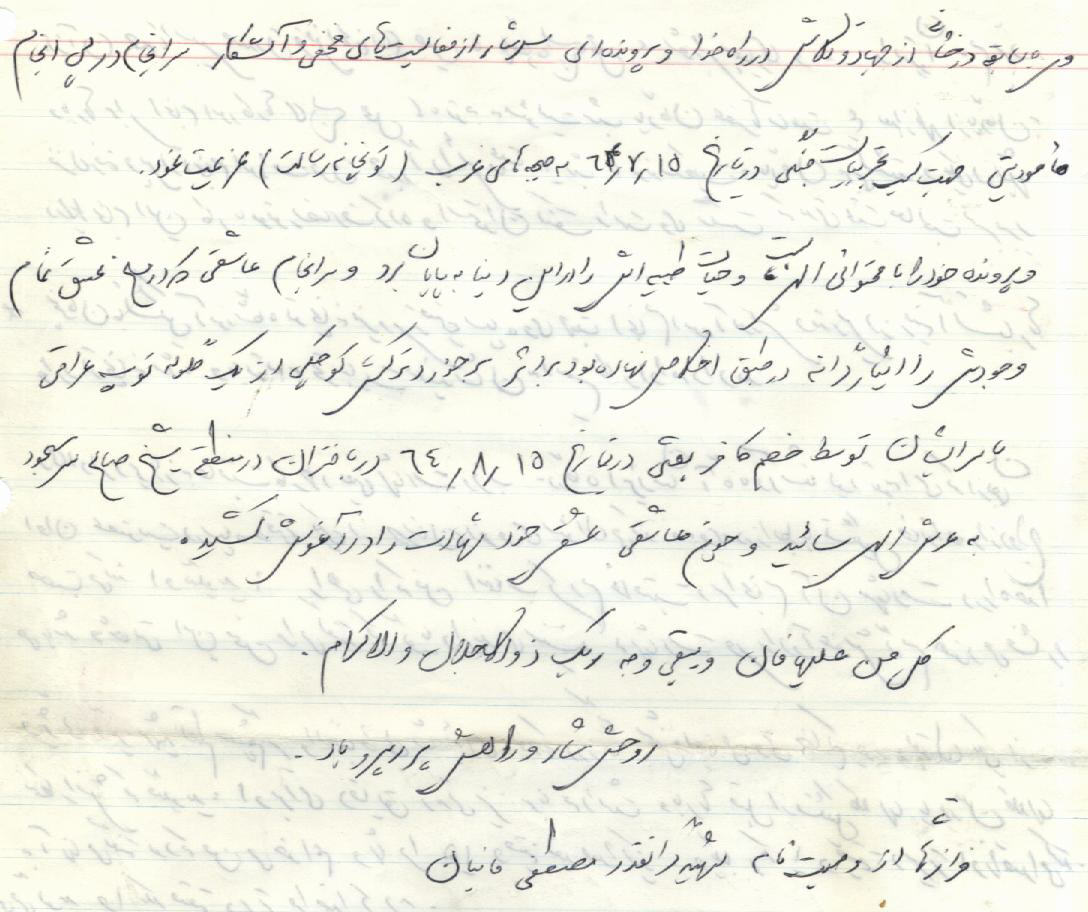 و سابقه درخشانی از جهاد و تلاش در راه خدا و پرونده‌ای سرشار از فعالیت‌های مخفی و آشکار سرانجام در پی انجام
مأموریتی جهت کسب تجربیات جنگی در تاریخ ٦٤/٧/١٥ به جبهه‌های غرب (توپخانه رسالت) عزیمت نمود.
و پرونده خود را با محتوائی الهی و حیات طیبه اش را در این دنیا به پایان برد و سرانجام عاشقی که در عشق تمام
وجودش را ایثارگرانه در طبق اخلاص نهاده بود بر اثر برخورد ترکش کوچکی از یک گلوله توپ عراقی
با سرایشان توسط خصم کافر بعثی در تاریخ ٦٤/٨/١٥ در باختران در منطقه شیخ صالح سر سجود
به عرش الهی سائید و چون عاشقی عشق خود شهادت را در آغوش کشید.
کل من علیها فان و یبقی وجه ربک ذوالجلال والاکرام.
روحش شاد و راهش پر رهرو باد.
فرازهائی از وصیت نامه شهید گرانقدر مصطفی مانیان